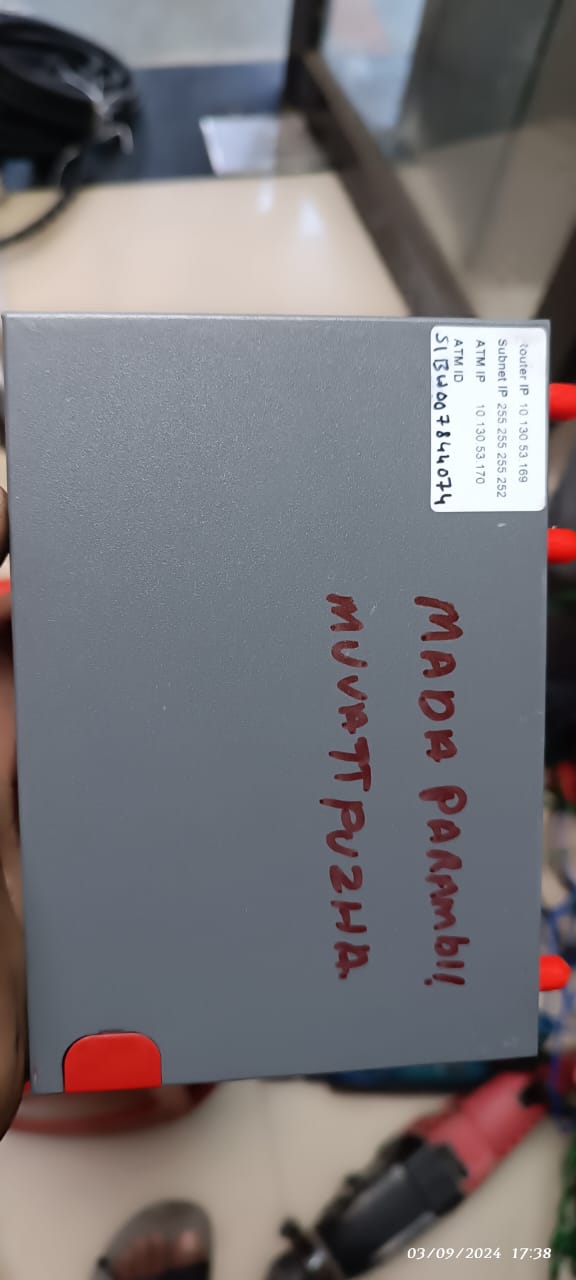 Router IP 10 130 53 169
Subnet IP 255 255 255 252
ATM IP 10 130 53 170
ATM ID
SIBW007844074
MADA PARAMbIl
MUVATTPUZHA
03/09/2024 17:38